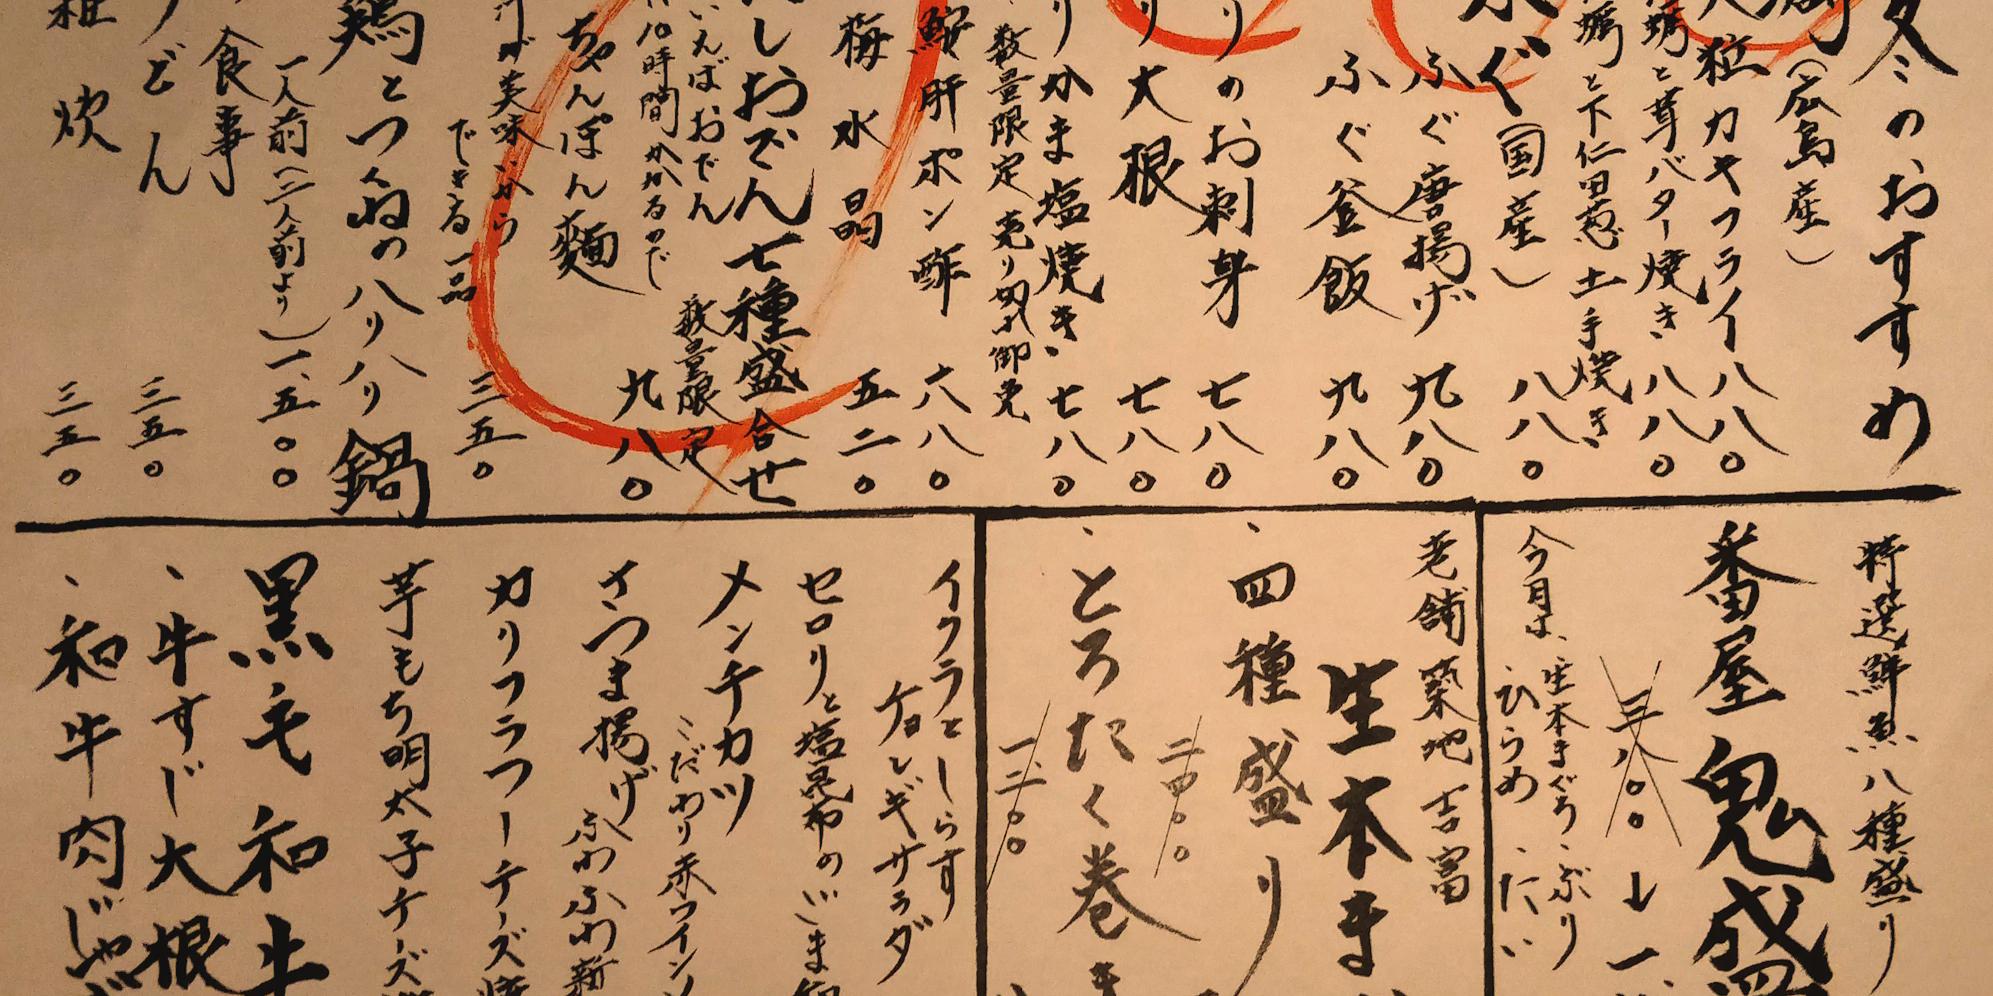 冬のおすすめ
(広島産)
大粒カキフライ 八八〇
牡蠣と茸バター焼き 八八〇
牡蠣と下仁田葱土手焼き
八八〇
ふぐ(国産)
ふぐ唐揚げ 九八〇
ふぐ釜飯 九八〇
りのお刺身 七八〇
り大根 七八〇
りかま塩焼き 七八〇
数量限定 売り切れ御免
鮟肝ポン酢 六八〇
梅水晶 五二〇
しおでん七種盛合せ
いんばおでん 数量限定
10時間かかるので
九八〇
ちゃんぽん麺
汁が美味いから
できる一品 三五〇
鶏とつくねのハリハリ鍋
一人前(二人前より) 一、五〇〇
食事
うどん 三五〇
雑炊 三五〇
特選鮮魚八種盛り
番屋 鬼盛
三八〇〇 → 一、
今月は、生本まぐろ、ぶり
、ひらめ、たい
老舗築地吉富
生本ま
、四種盛り
二四〇〇
、とろたく巻き
一二〇〇
イクラとしらす
チョレギサラダ
セロリと塩昆布のごま和
メンチカツ
こだわり赤ワインソ
さつま揚げ ふわふわ新
カリフラワーチーズ焼
芋もち明太子チーズ
黒毛和牛
、牛すじ大根
、和牛肉じゃが